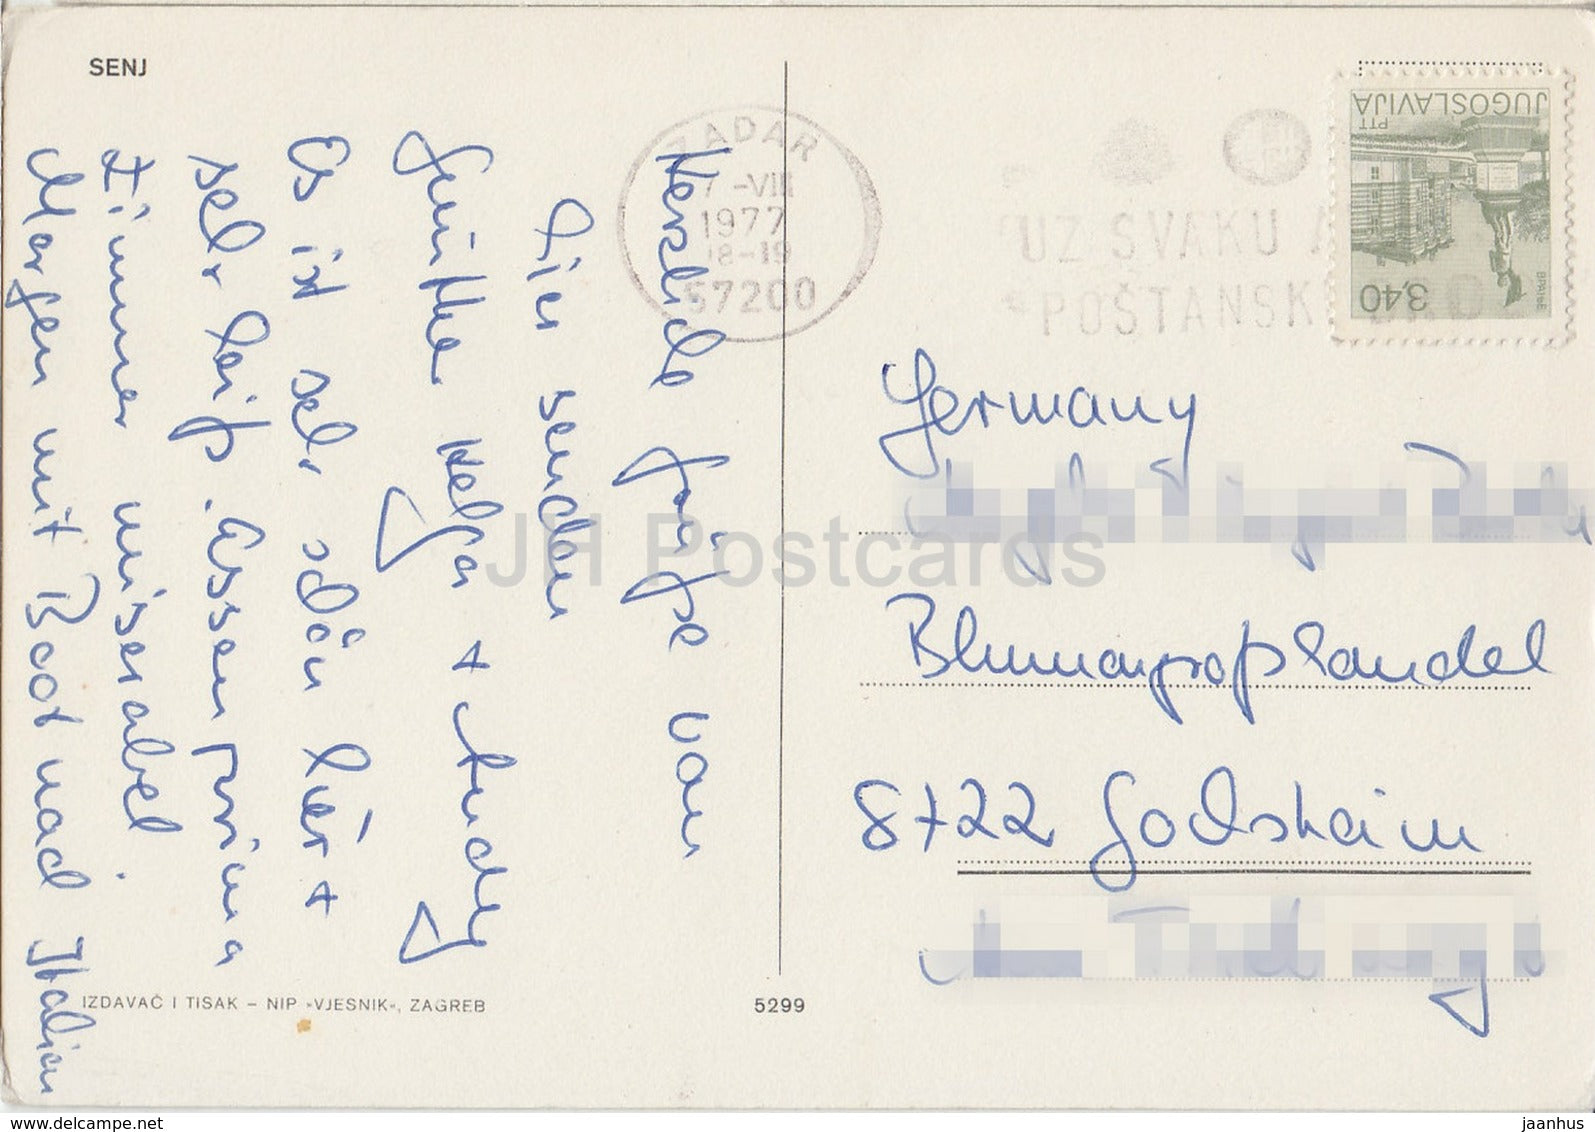 SENJ
Herzliche Grüße von
hier senden
Günther Helga + Andy
Es ist sehr schön hier +
sehr heiß. Essen prima
Zimmer miserabel.
Morgen mit Boot nach Italien
ZADAR
7 -VIII
1977
18-19
57200
UZ SVAKU A
POŠTANSK
JUGOSLAVIJA
PTT
3,40
Germany
Blumengroßhandel
8722 Godsheim
IZDAVAČ I TISAK – NIP »VJESNIK«, ZAGREB
5299
JH Postcards
www.delcampe.net
jaanhus